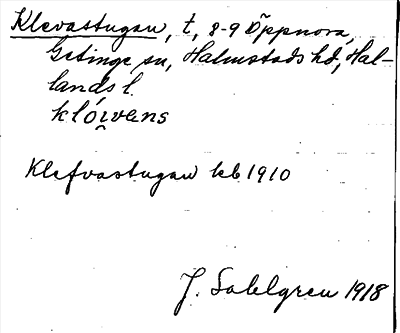 Klevastugan, t, 8-9 Öppnora,
Getinge sn, Halmstads hd, Hal-
lands l.
klówans
Klefvastugan kb 1910
J. Sahlgren 1918